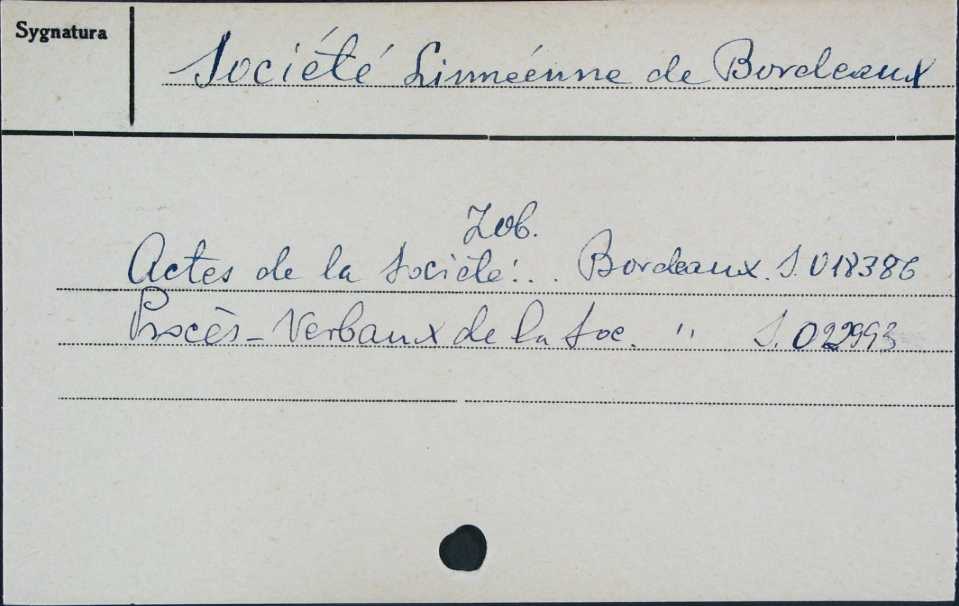 Sygnatura
Société Linnéenne de Bordeaux
Zob.
Actes de la Société... Bordeaux. S. 018386
Procès-Verbaux de la Soc. " S. 022993